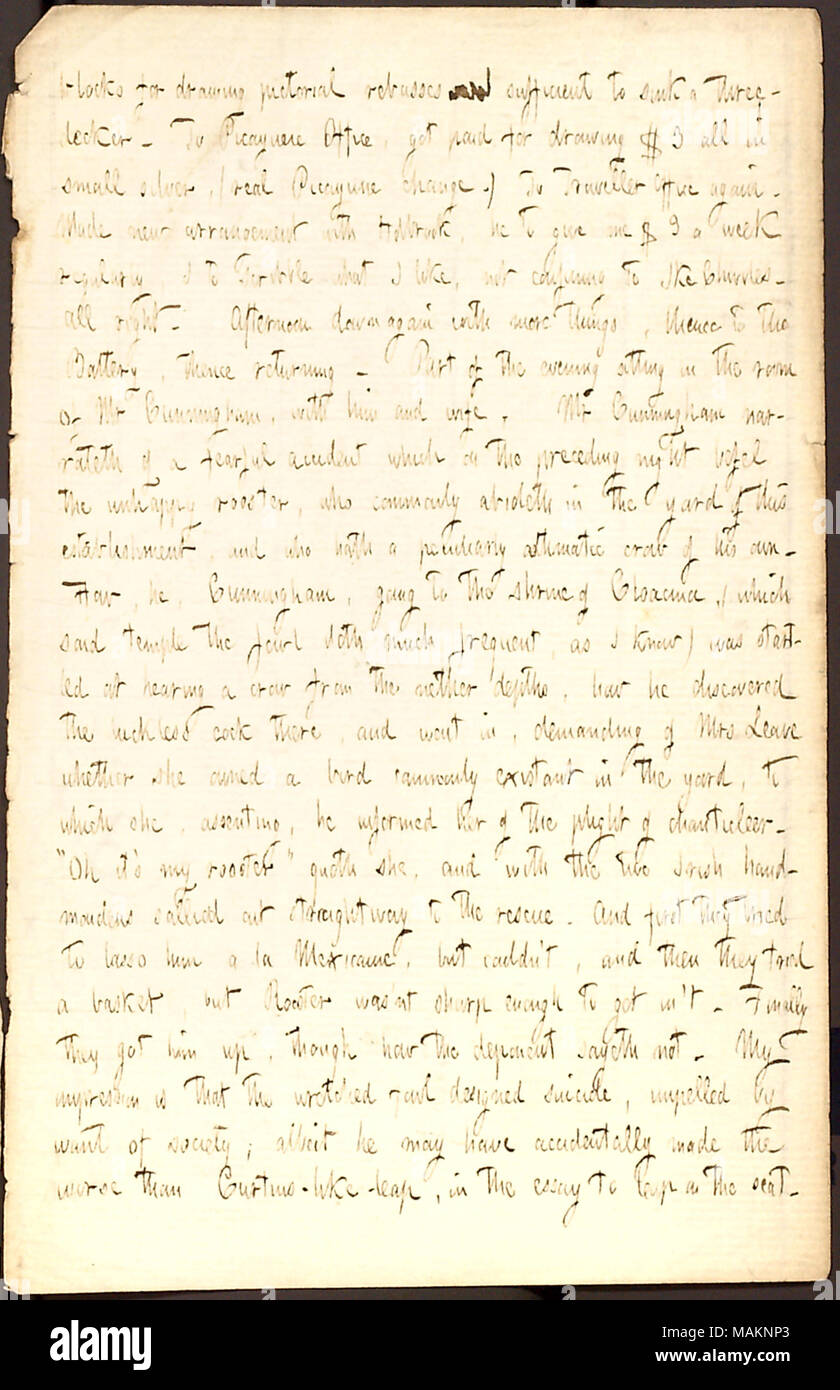 blocks for drawing pictorial rebusses sufficient to sink a three-
decker. To Picayune Office, got paid for drawing $3 all in
small silver, (real Picayune change.) To Traveller Office again.
Made new arrangement with Holbrook, he to give me $ a week
regularly, I to scribble what I like, not confining to Ike Chivvles-
all right. Afternoon down again with more things, thence to the
Battery, thence returning. Part of the evening sitting in the room
of Mr Cunningham, with him and wife. Mr Cunningham nar-
rateth of a fearful accident which on the preceding night befel
the unhappy rooster, who commonly abideth in the yard of this
establishment, and who hath a peculiarly asthmatic crow of his own.
How, he, Cunningham, going to the shrine of Cloacina, (which
said temple the fowl doth much frequent, as I know) was start-
led at hearing a crow from the nether depths, how he discovered
the luckless cock there, and went in, demanding of Mrs Leave
whether she owned a bird commonly existant in the yard, to
which she, assenting, he informed her of the plight of chanticleer.
"Oh it's my rooster" quoth she, and with the two Irish hand-
maidens sallied out straightway to the rescue. And first they tried
to lasso him a la Mexicaine, but couldn't, and then they tried
a basket, but Rooster wasn't sharp enough to get in't. Finally
they got him up, though how the deponent sayeth not. My
impression is that the wretched fowl designed suicide, impelled by
want of society; albeit he may have accidentally made the
worse than Curtius-like-leap, in the essay to leap on the seat.
alamy
Image ID: MAKNP3
www.alamy.com